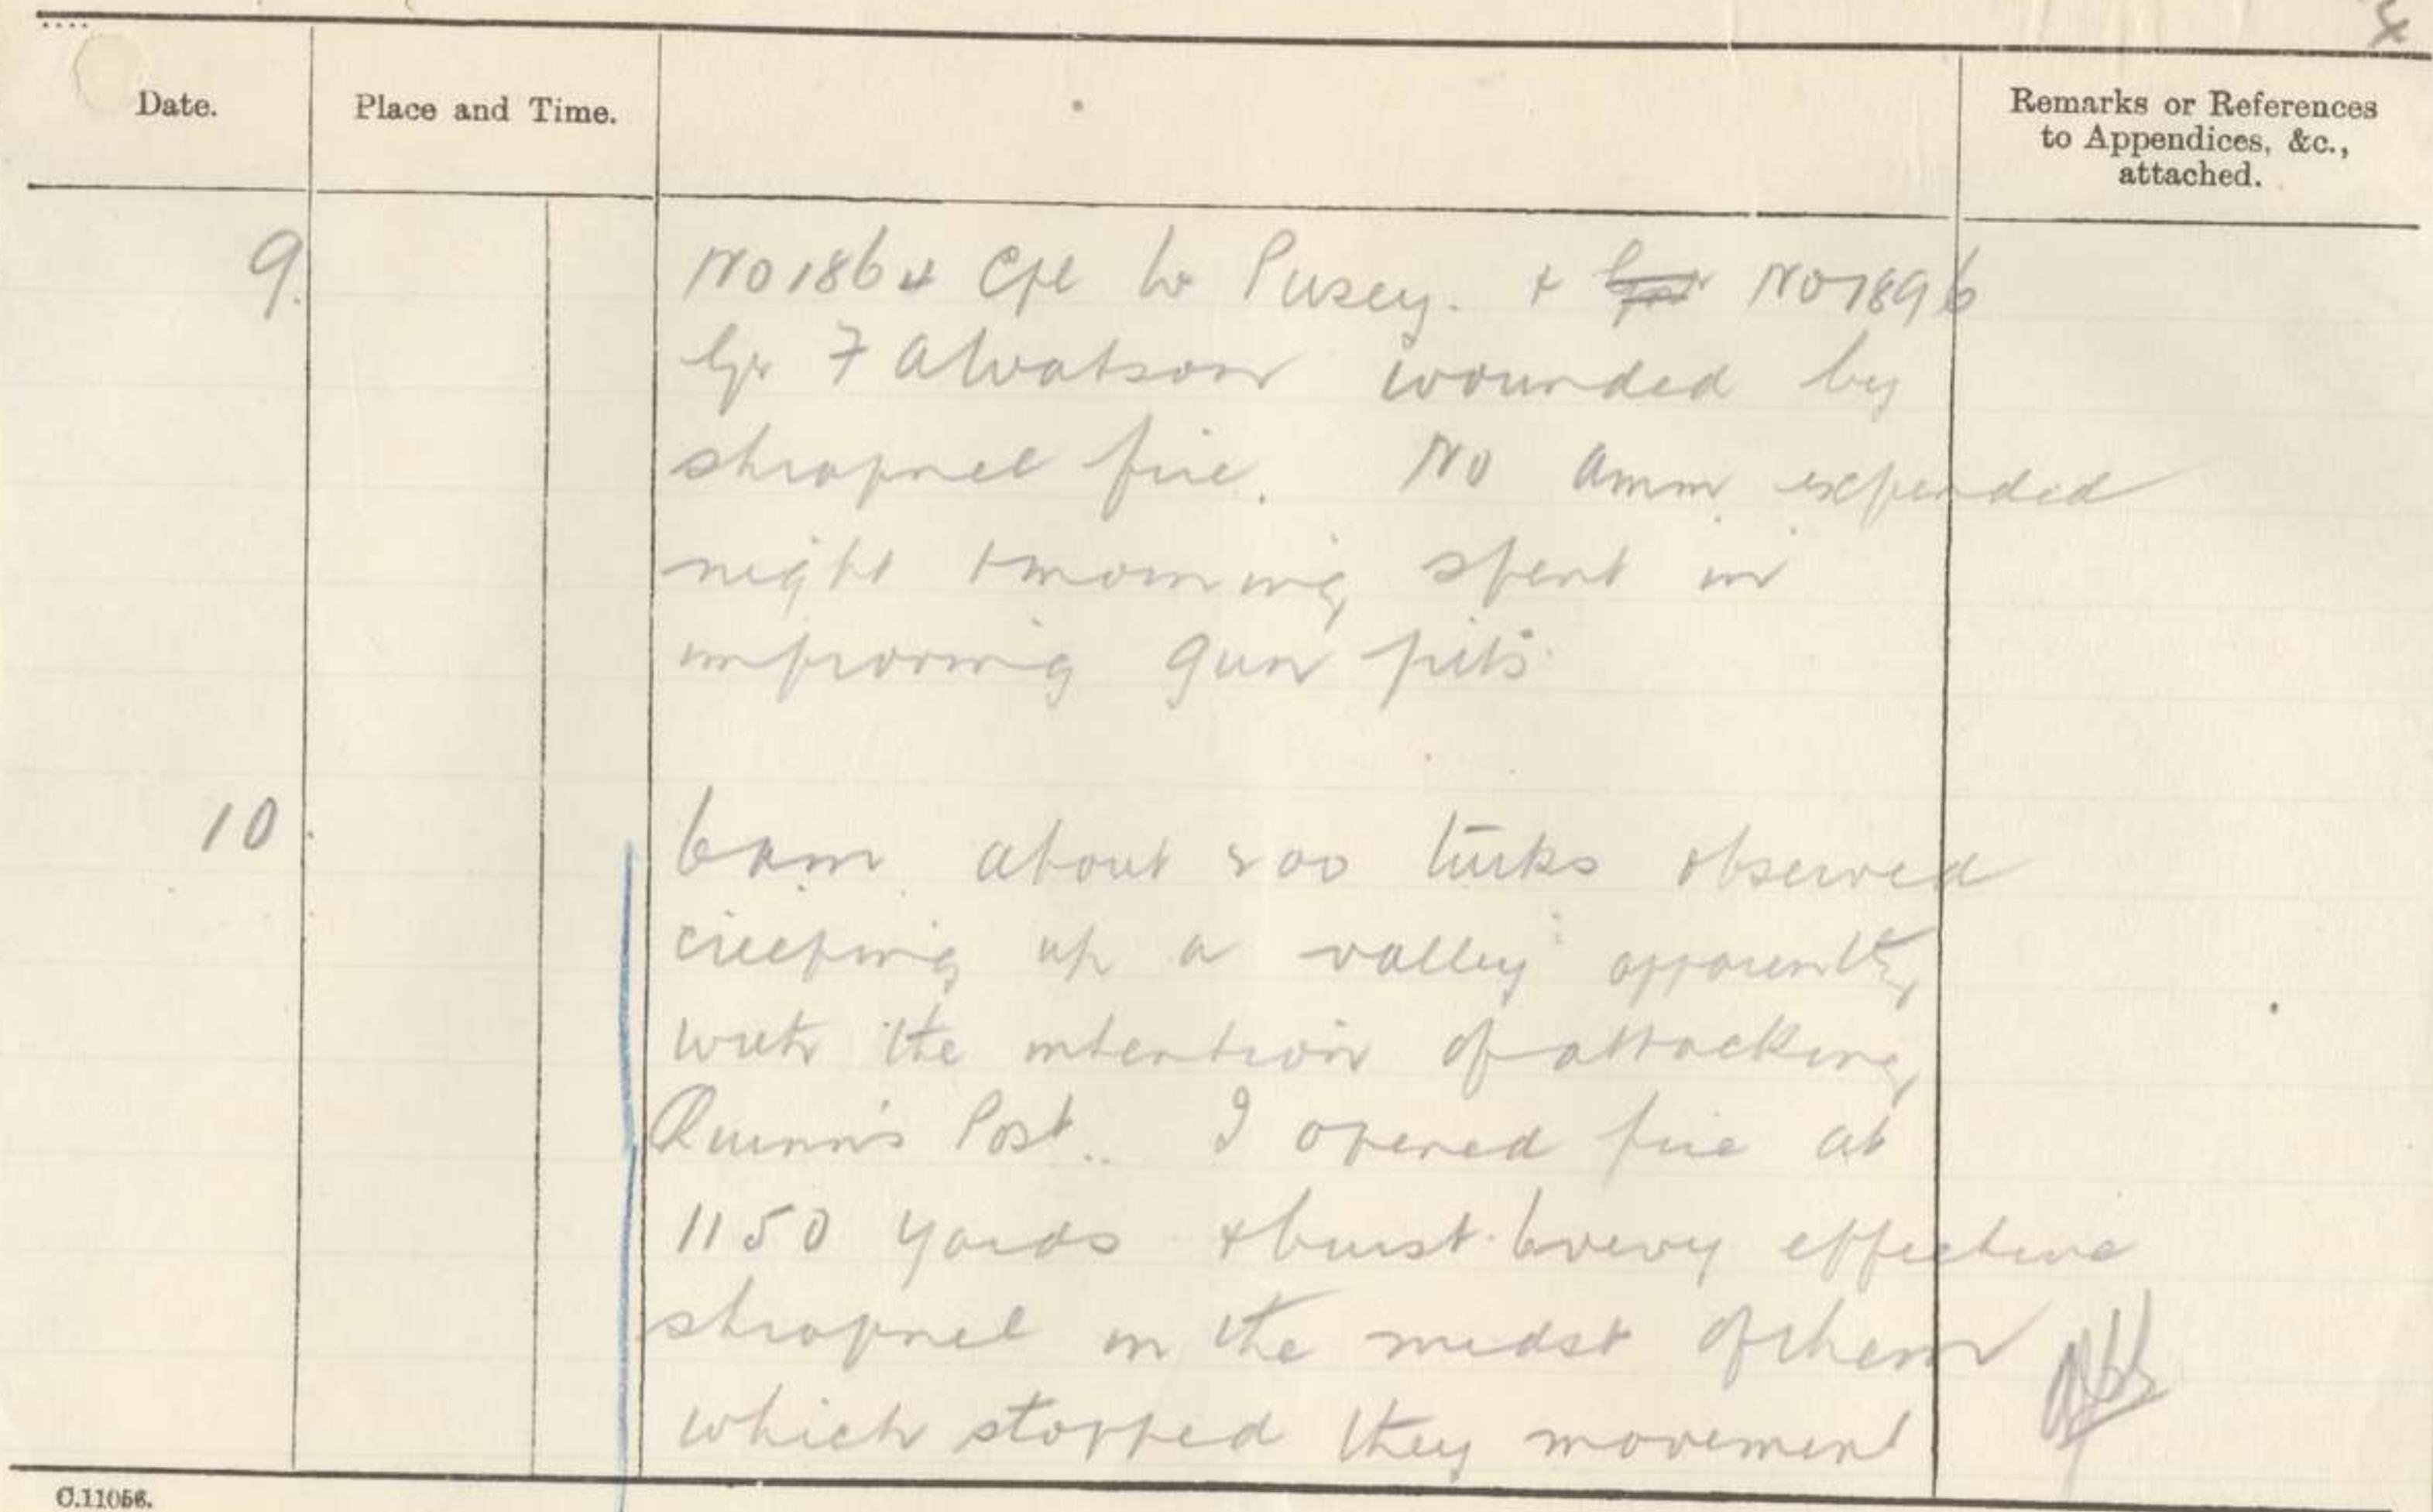 Date.
Place and Time.
Remarks or References
to Appendices, &c.,
attached.
9.
No 1864 Cpl W Pusey. + No 1896
Gr F A Watson wounded by
shrapnel fire. No amm expended
night + morning spent in
improving gun pits
10.
6am about 200 turks observed
creeping up a valley apparently
with the intention of attacking
Quinn's Post.. I opened fire at
1150 yards + burst 6 very effective
shrapnel in the midst of them
which stopped they movement
C.11056.